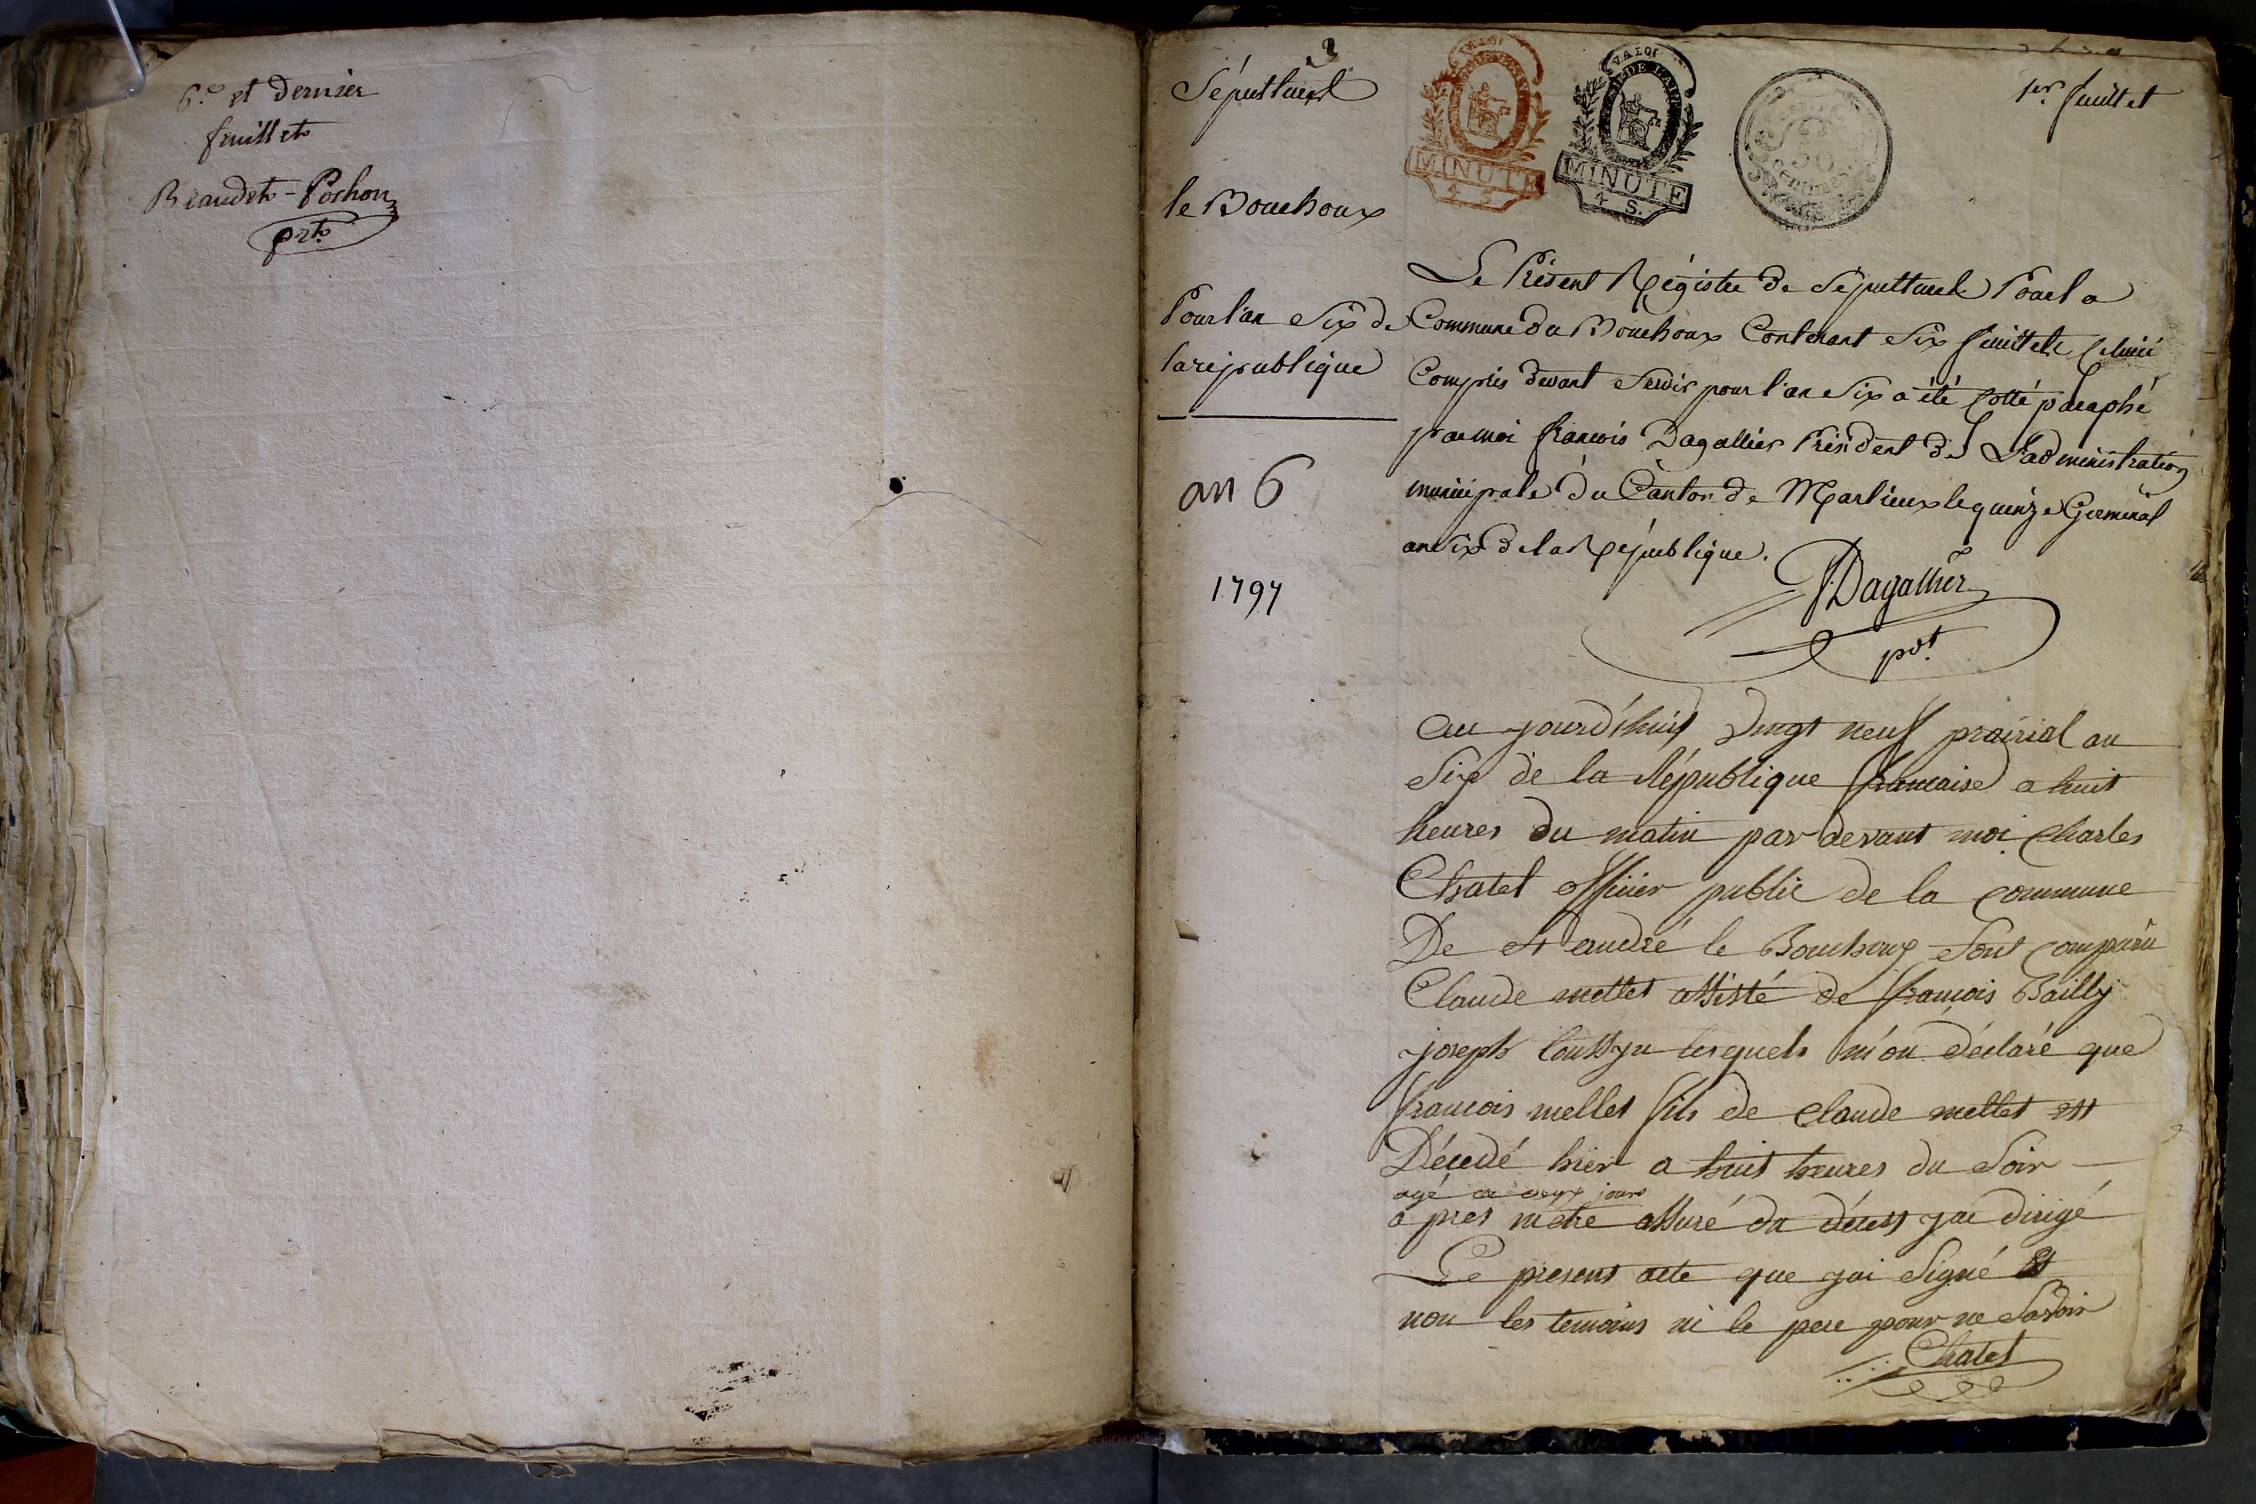 6e et dernier
feuillet
Beaudet-Pochon
prt
Sépultures
le Bouchoux
Pour l'an Six de
la république
an 6
1797
MINUTE
4 S.
MINUTE
4 S.
50
centimes
1er feuillet
Le Présent Régistre de Sépultures Pour la
Commune du Bouchoux Contenant Six feuillets celuici
Compris devant Servir pour l'an Six a été Cotté paraphé
par moi françois Dagallier Président de L'administration
municipale du Canton de Marlieux le quinze Germinal
an Six de la République.
Dagallier
pdt.
au jourd'huit vingt neuf prairial an
Six de la République francaise a huit
heures du matin par devant moi Charles
Chatel officier public de la commune
De st andré le Bouchoux Sont comparu
Claude mellet assisté de francois Bailly
joseph lesquels m'on déclaré que
francois mellet fils de Claude mellet est
Décedé hier a huit heures du Soir
agé de deux jours
a pres m'etre assuré du décess jai dirigé
Le present acte que jai Signé et
non les temoins ni le pere pour ne Savoir
Chatel